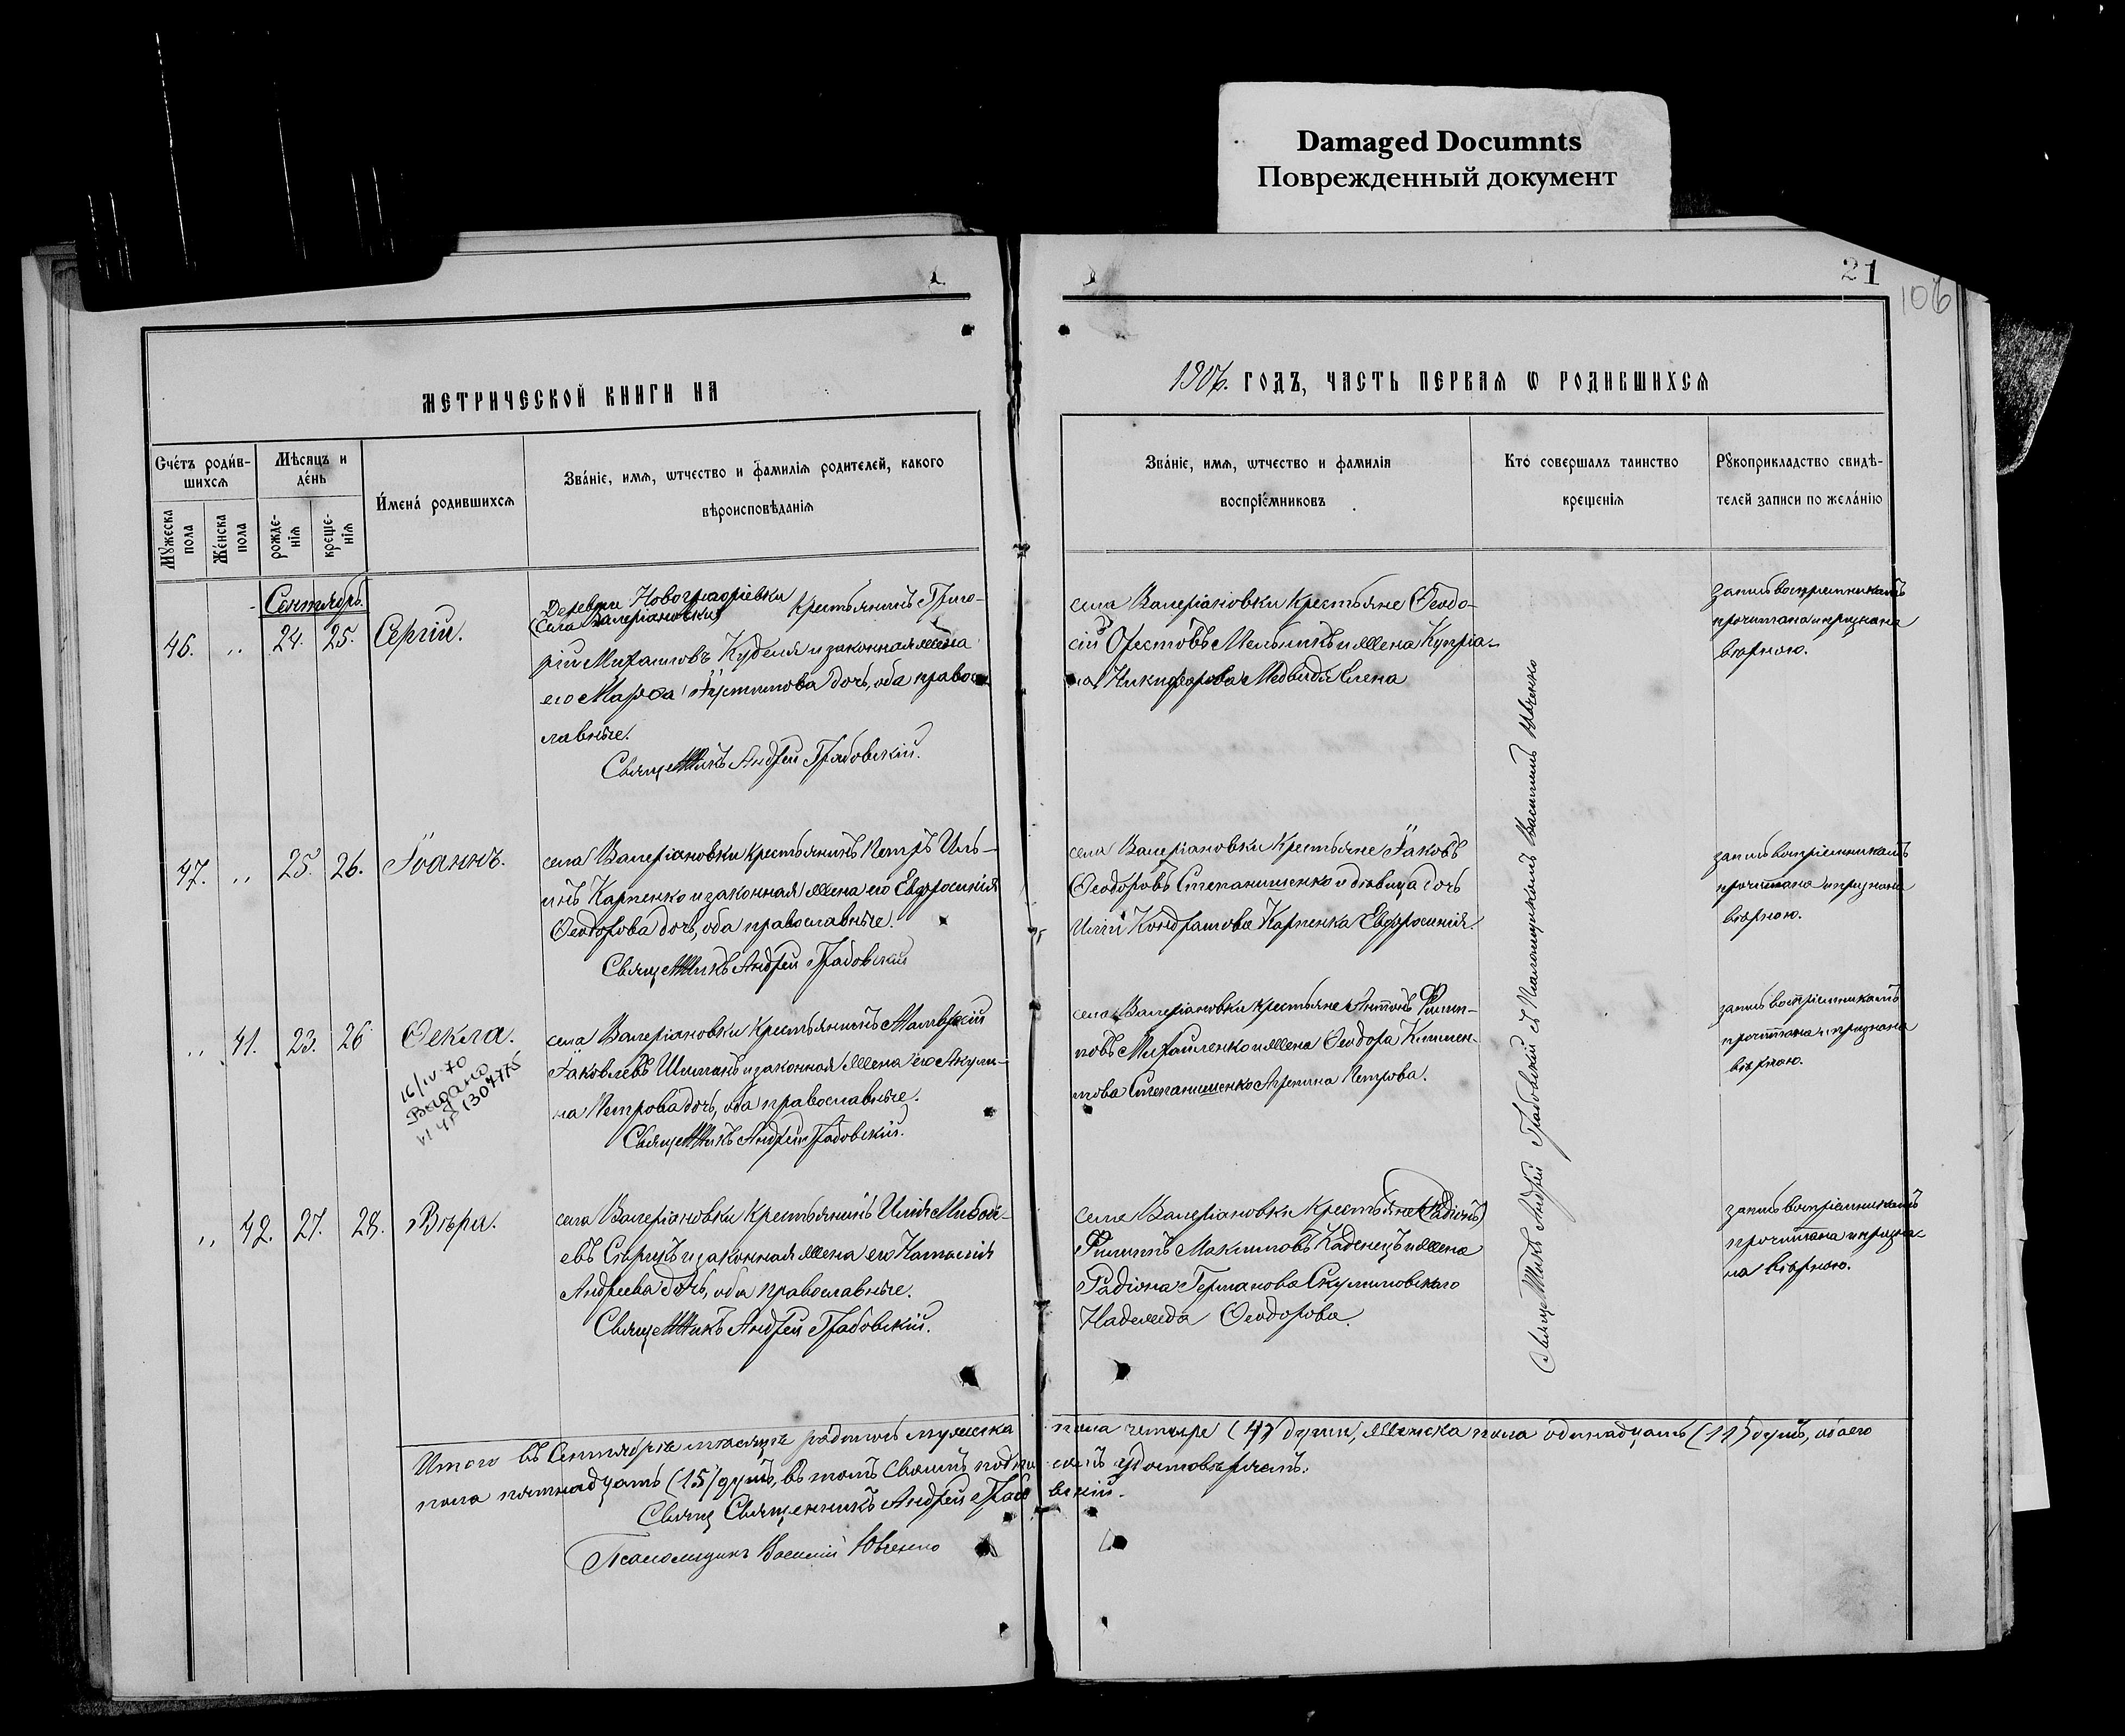 Damaged Documnts
Поврежденный документ
21
106
МЕТРИЧЕСКОЙ КНИГИ НА
1906. ГОДЪ, ЧАСТЬ ПЕРВАЯ Ѡ РОДИВШИХСЯ
Счетъ родив-
шихся
Мѣсяцъ и
день
Имена родившихся
Званіе, имя, ѡтчество и фамилія родителей, какого
вѣроисповѣданія
Мужеска
пола
Женска
пола
рожде-
нія
креще-
нія
Званіе, имя, ѡтчество и фамилія
воспріемниковъ
Кто совершалъ таинство
крещенія
Рукоприкладство свидѣ-
телей записи по желанію
Сентябрь.
46. „ 24. 25. Сергій.
Деревни Новогригоріевки
(Села Валеріановки) крестьянинъ Григо-
рій Михаиловъ Куделя и законная жена
его Марѳа Іустинова дочь, оба правос-
лавные.
Священникъ Андрей Грабовскій.
села Валеріановки крестьяне Ѳеодо-
сій Орестовъ Мельникъ и жена Купріа-
на Никифорова Медвидя Елена
запись воспріемникамъ
прочитана и признана
вѣрною.
47. „ 25. 26. Іоаннъ.
села Валеріановки крестьянинъ Петръ Иль-
инъ Карпенко и законная жена его Евфросинія
Ѳеодорова дочь, оба православные.
Священникъ Андрей Грабовскій
села Валеріановки крестьяне Іаковъ
Ѳеодоровъ Степанищенко и дѣвица дочь
Иліи Кондратова Карпенка Евфросинія.
запись воспріемникамъ
прочитана и признана
вѣрною.
„ 41. 23. 26 Ѳекла.
16/IV-70
Видано
1304775
села Валеріановки крестьянинъ Матвѣй
Іаковлевъ Шиманъ и законная жена его Акули-
на Петрова дочь, оба православные.
Священникъ Андрей Грабовскій.
села Валеріановки крестьяне Антонъ Филип-
повъ Михайленко и жена Ѳеодора Климен-
това Степанищенко Агрипина Петрова.
запись воспріемникамъ
прочитана и признана
вѣрною.
„ 42. 27. 28. Вѣра.
села Валеріановки крестьянинъ Илія Меѳоді-
евъ и законная жена его Наталія
Андреева дочь, оба православные.
Священникъ Андрей Грабовскій.
села Валеріановки крестьяне (Радіонъ)
Филиппъ Максимовъ Каденецъ и жена
Радіона Германова Скулимовскаго
Надежда Ѳеодорова.
запись воспріемникамъ
прочитана и призна-
на вѣрною.
Священникъ Андрей Грабовскій съ Псаломщикомъ Василіемъ Ювченко
Итого въ Сентябрѣ мѣсяцѣ родилось мужеска пола четыре (4) души, женска пола одинадцать (11) душъ, обоего
пола пятнадцать (15) душъ, въ томъ своимъ подписомъ удостовѣряемъ:
Свящ Священникъ Андрей Грабовскій.
Псаломщикъ Василій Ювченко